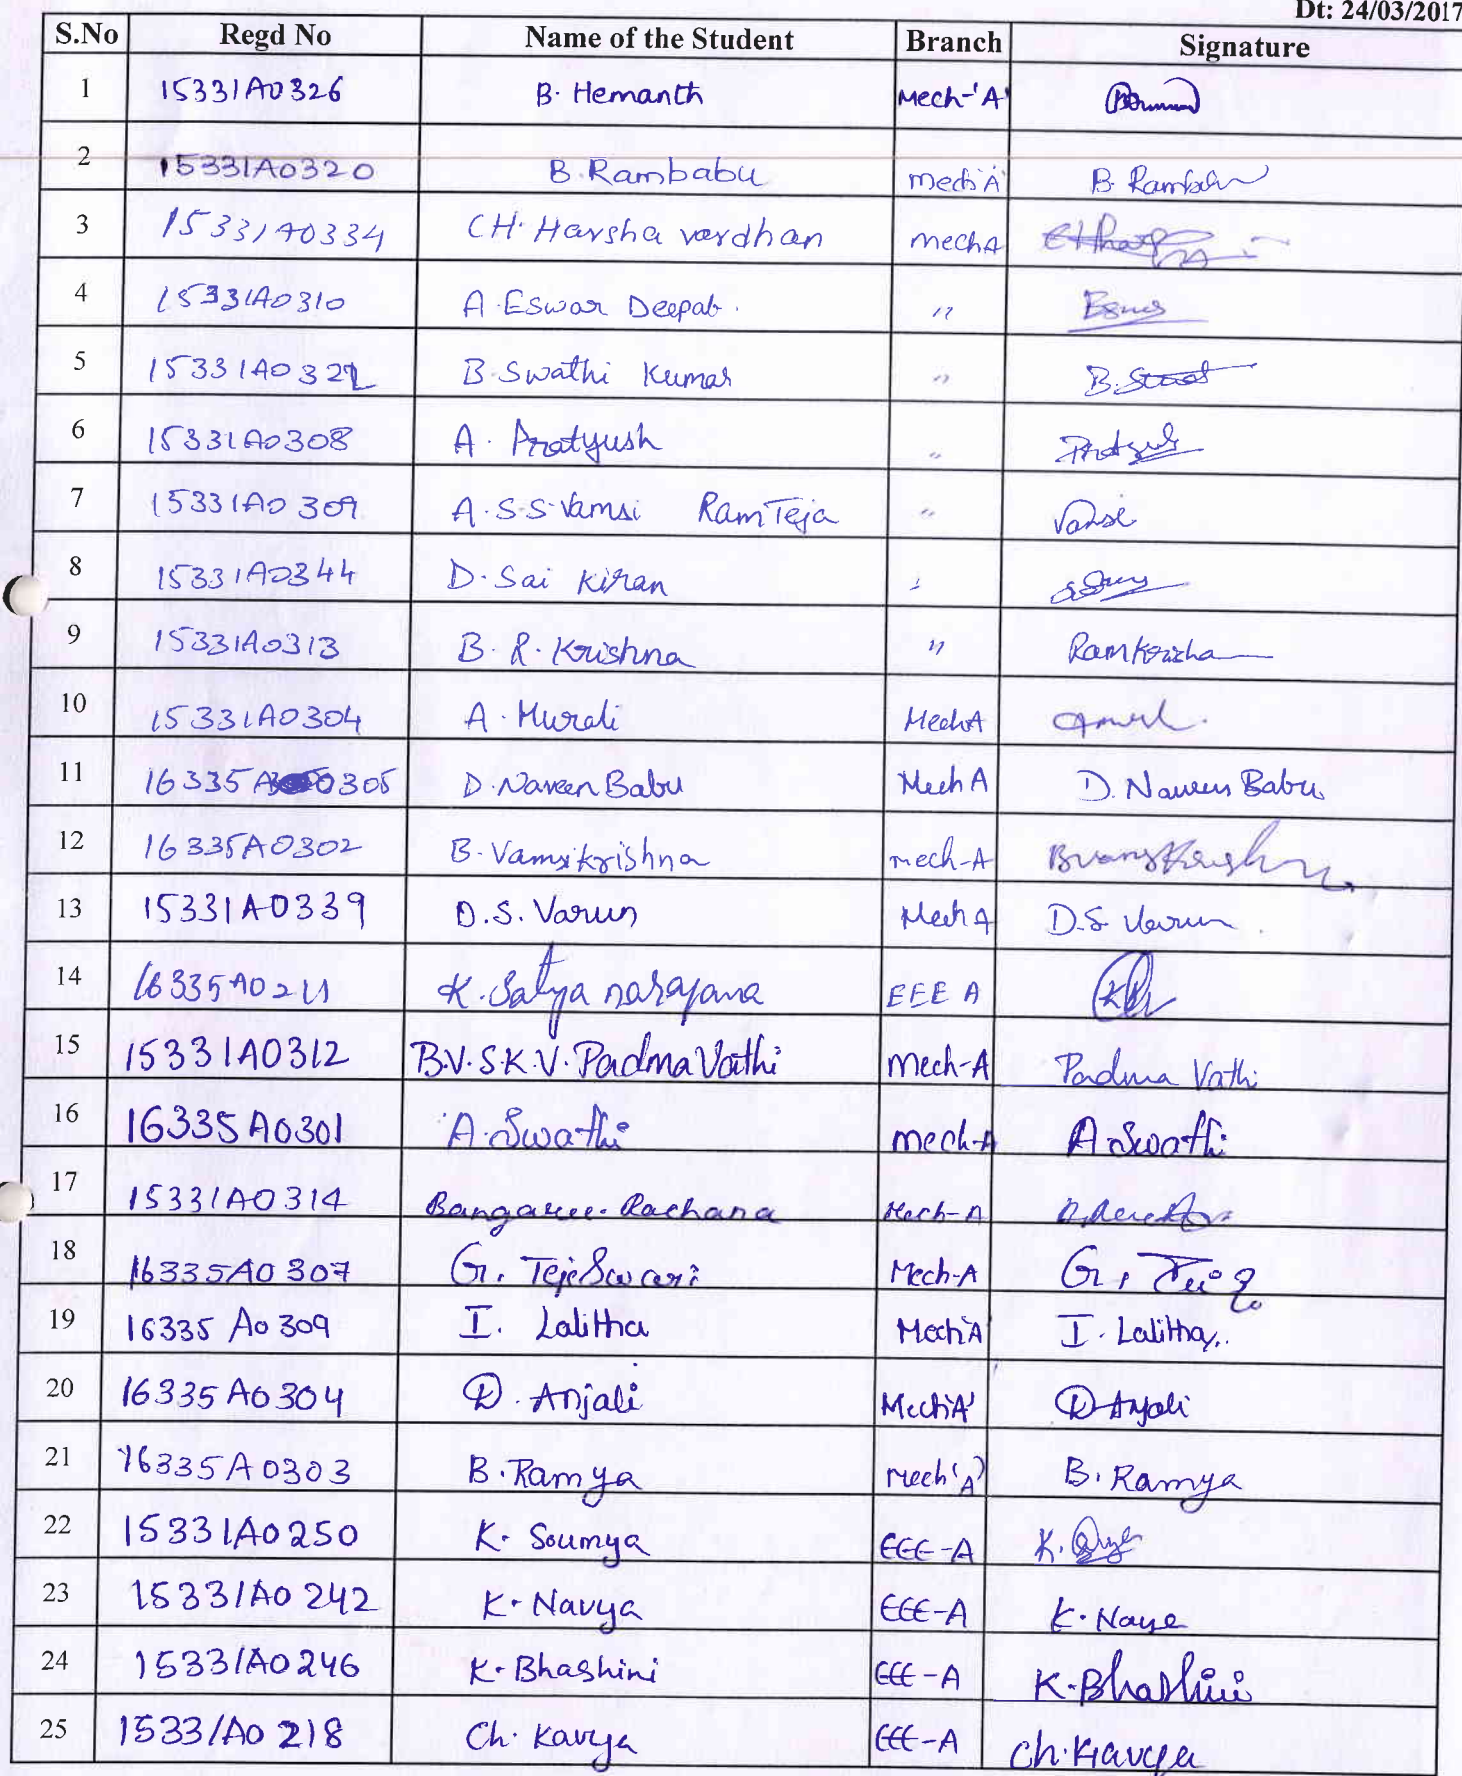 Dt: 24/03/2017
S.No Regd No Name of the Student Branch Signature
1 15331A0326 B. Hemanth Mech-'A'
2 15331A0320 B. Rambabu mech'A' B. Rambabu
3 15331A0334 CH. Harsha vardhan mechA
4 15331A0310 A. Eswar Deepak. "
5 15331A0322 B. Swathi Kumar " B.
6 15331A0308 A. Pratyush "
7 15331A0309 A.S.S. Vamsi Ram Teja " Vamsi
8 15331A0344 D. Sai Kiran "
9 15331A0313 B. R. Krishna " Ramkrisha
10 15331A0304 A. Murali MechA
11 16335A0305 D. Naveen Babu Mech A D. Naveen Babu
12 16335A0302 B. Vamsikrishna mech-A
13 15331A0339 D.S. Varun Mech A D.S. Varun
14 16335A0211 K. Satya narayana EEE A
15 15331A0312 B.V.S.K.V. Padma Vathi Mech-A Padma Vathi
16 16335A0301 A. Swathi mech-A A. Swathi
17 15331A0314 Bangaree. Rachana Mech-A
18 16335A0307 G. TejeSwari Mech-A G.
19 16335A0309 I. Lalitha Mech'A' I. Lalitha
20 16335A0304 D. Anjali Mech'A' D Anjali
21 16335A0303 B. Ramya Mech'A' B. Ramya
22 15331A0250 K. Soumya EEE-A K.
23 15331A0242 K. Navya EEE-A K. Navya
24 15331A0246 K. Bhashini EEE-A K. Bhashini
25 15331A0218 Ch. Kavya EEE-A Ch. Kavya